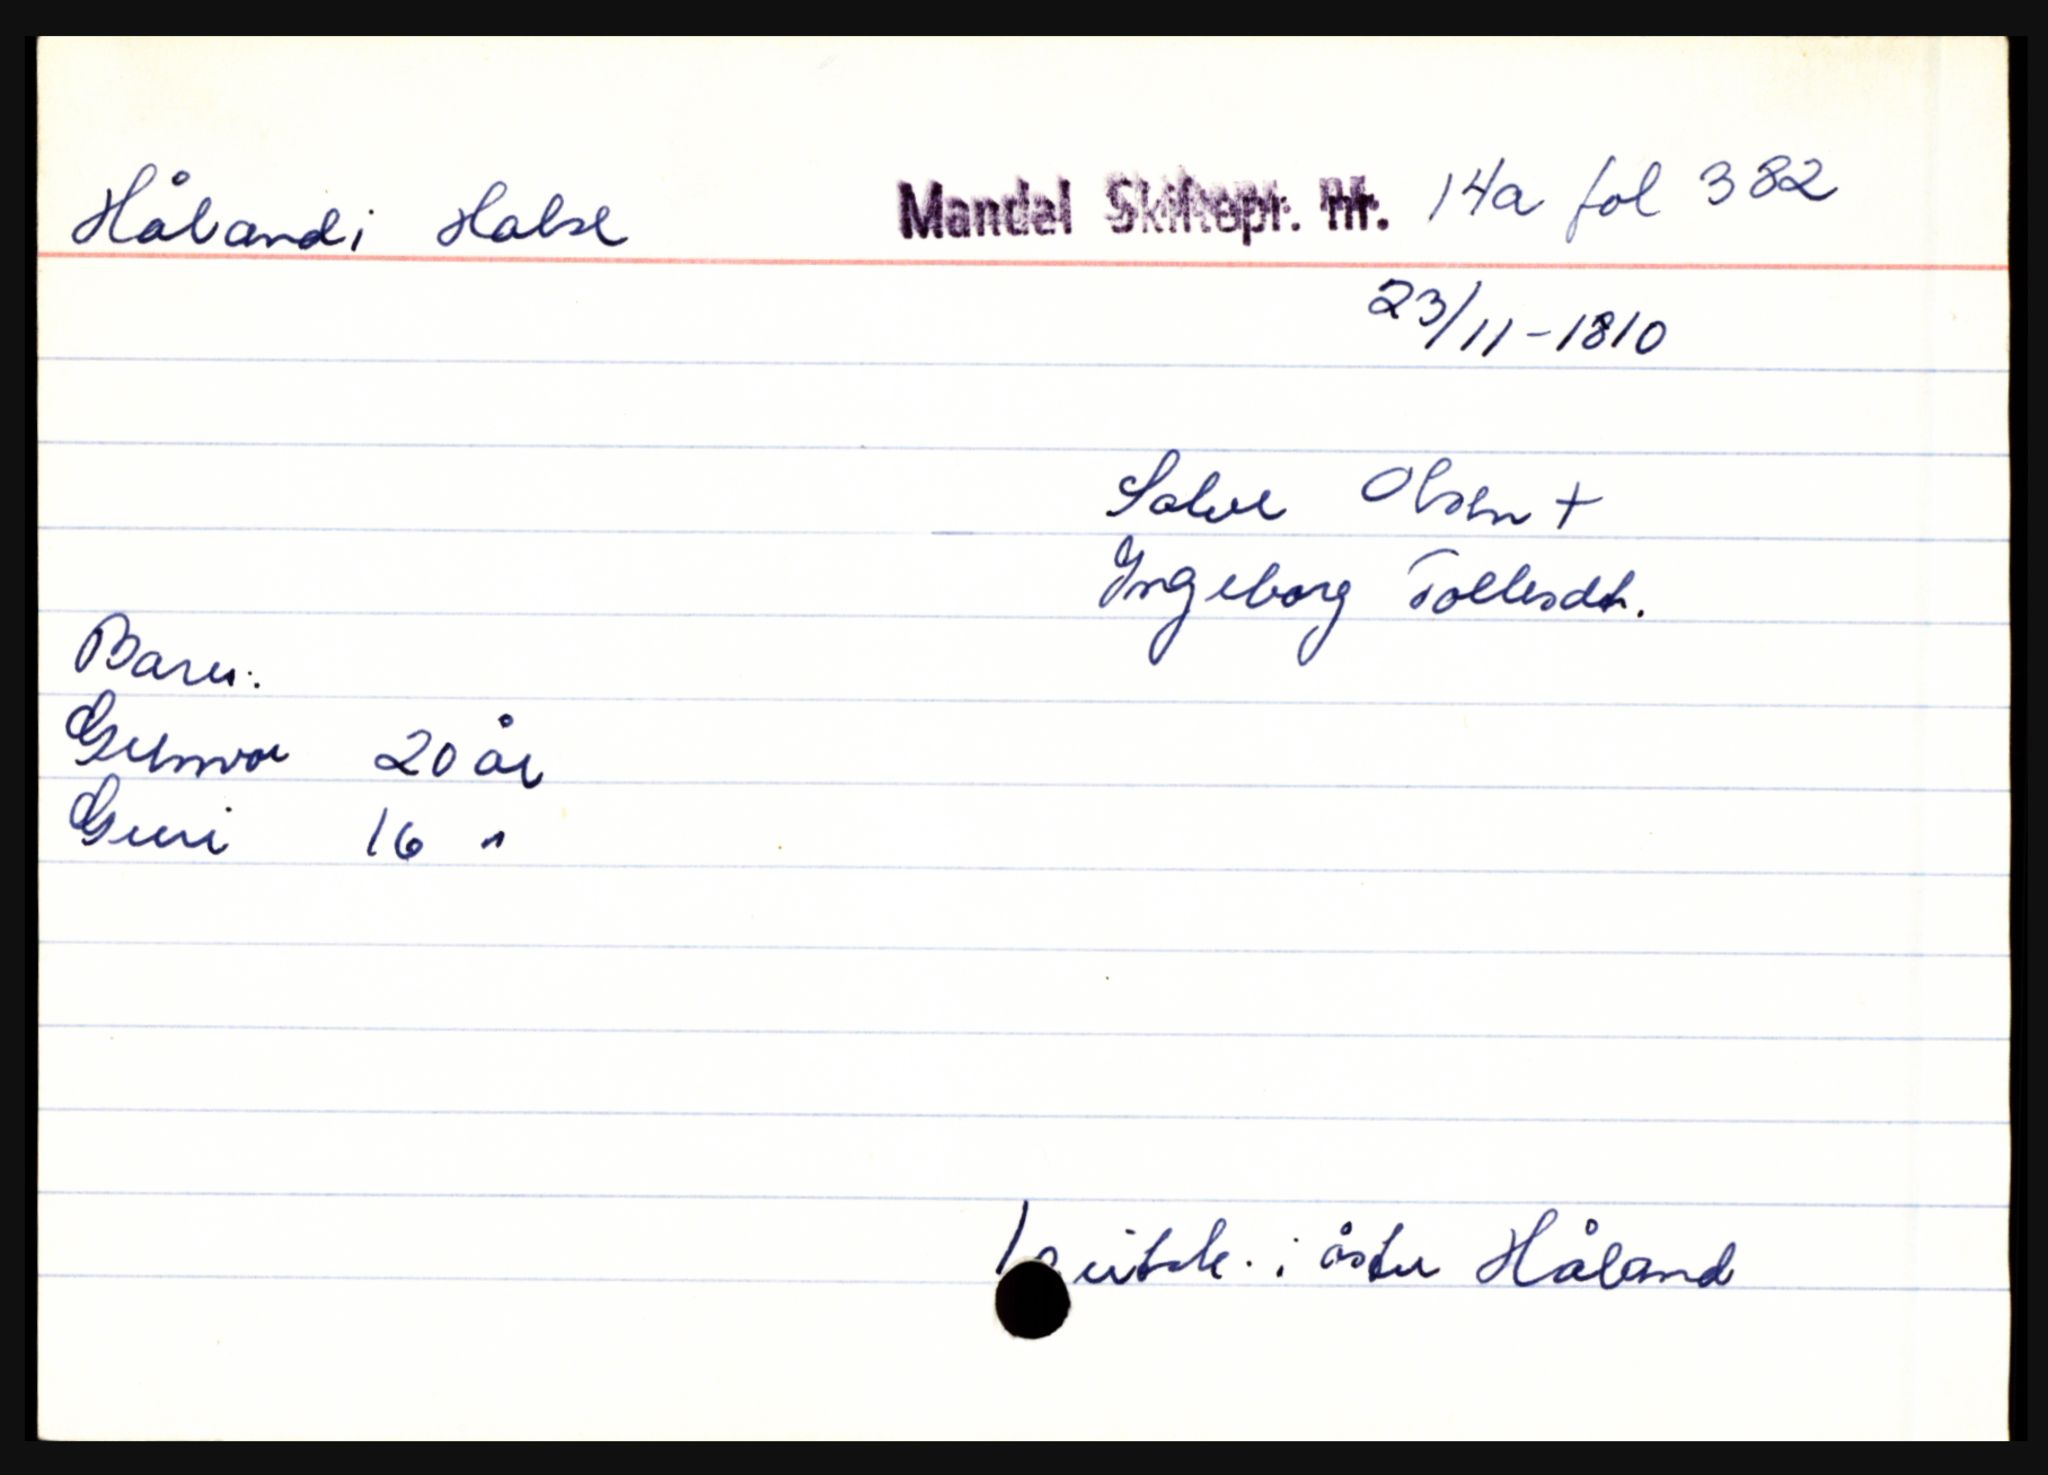 Håland i Halse Mandal Skiftepr. nr. 14a fol 382
23/11-1810
Salve Olsen +
Ingeborg Tollesdtr.
Barn:
Gunvor 20 år
Guri 16 "
i østre Håland